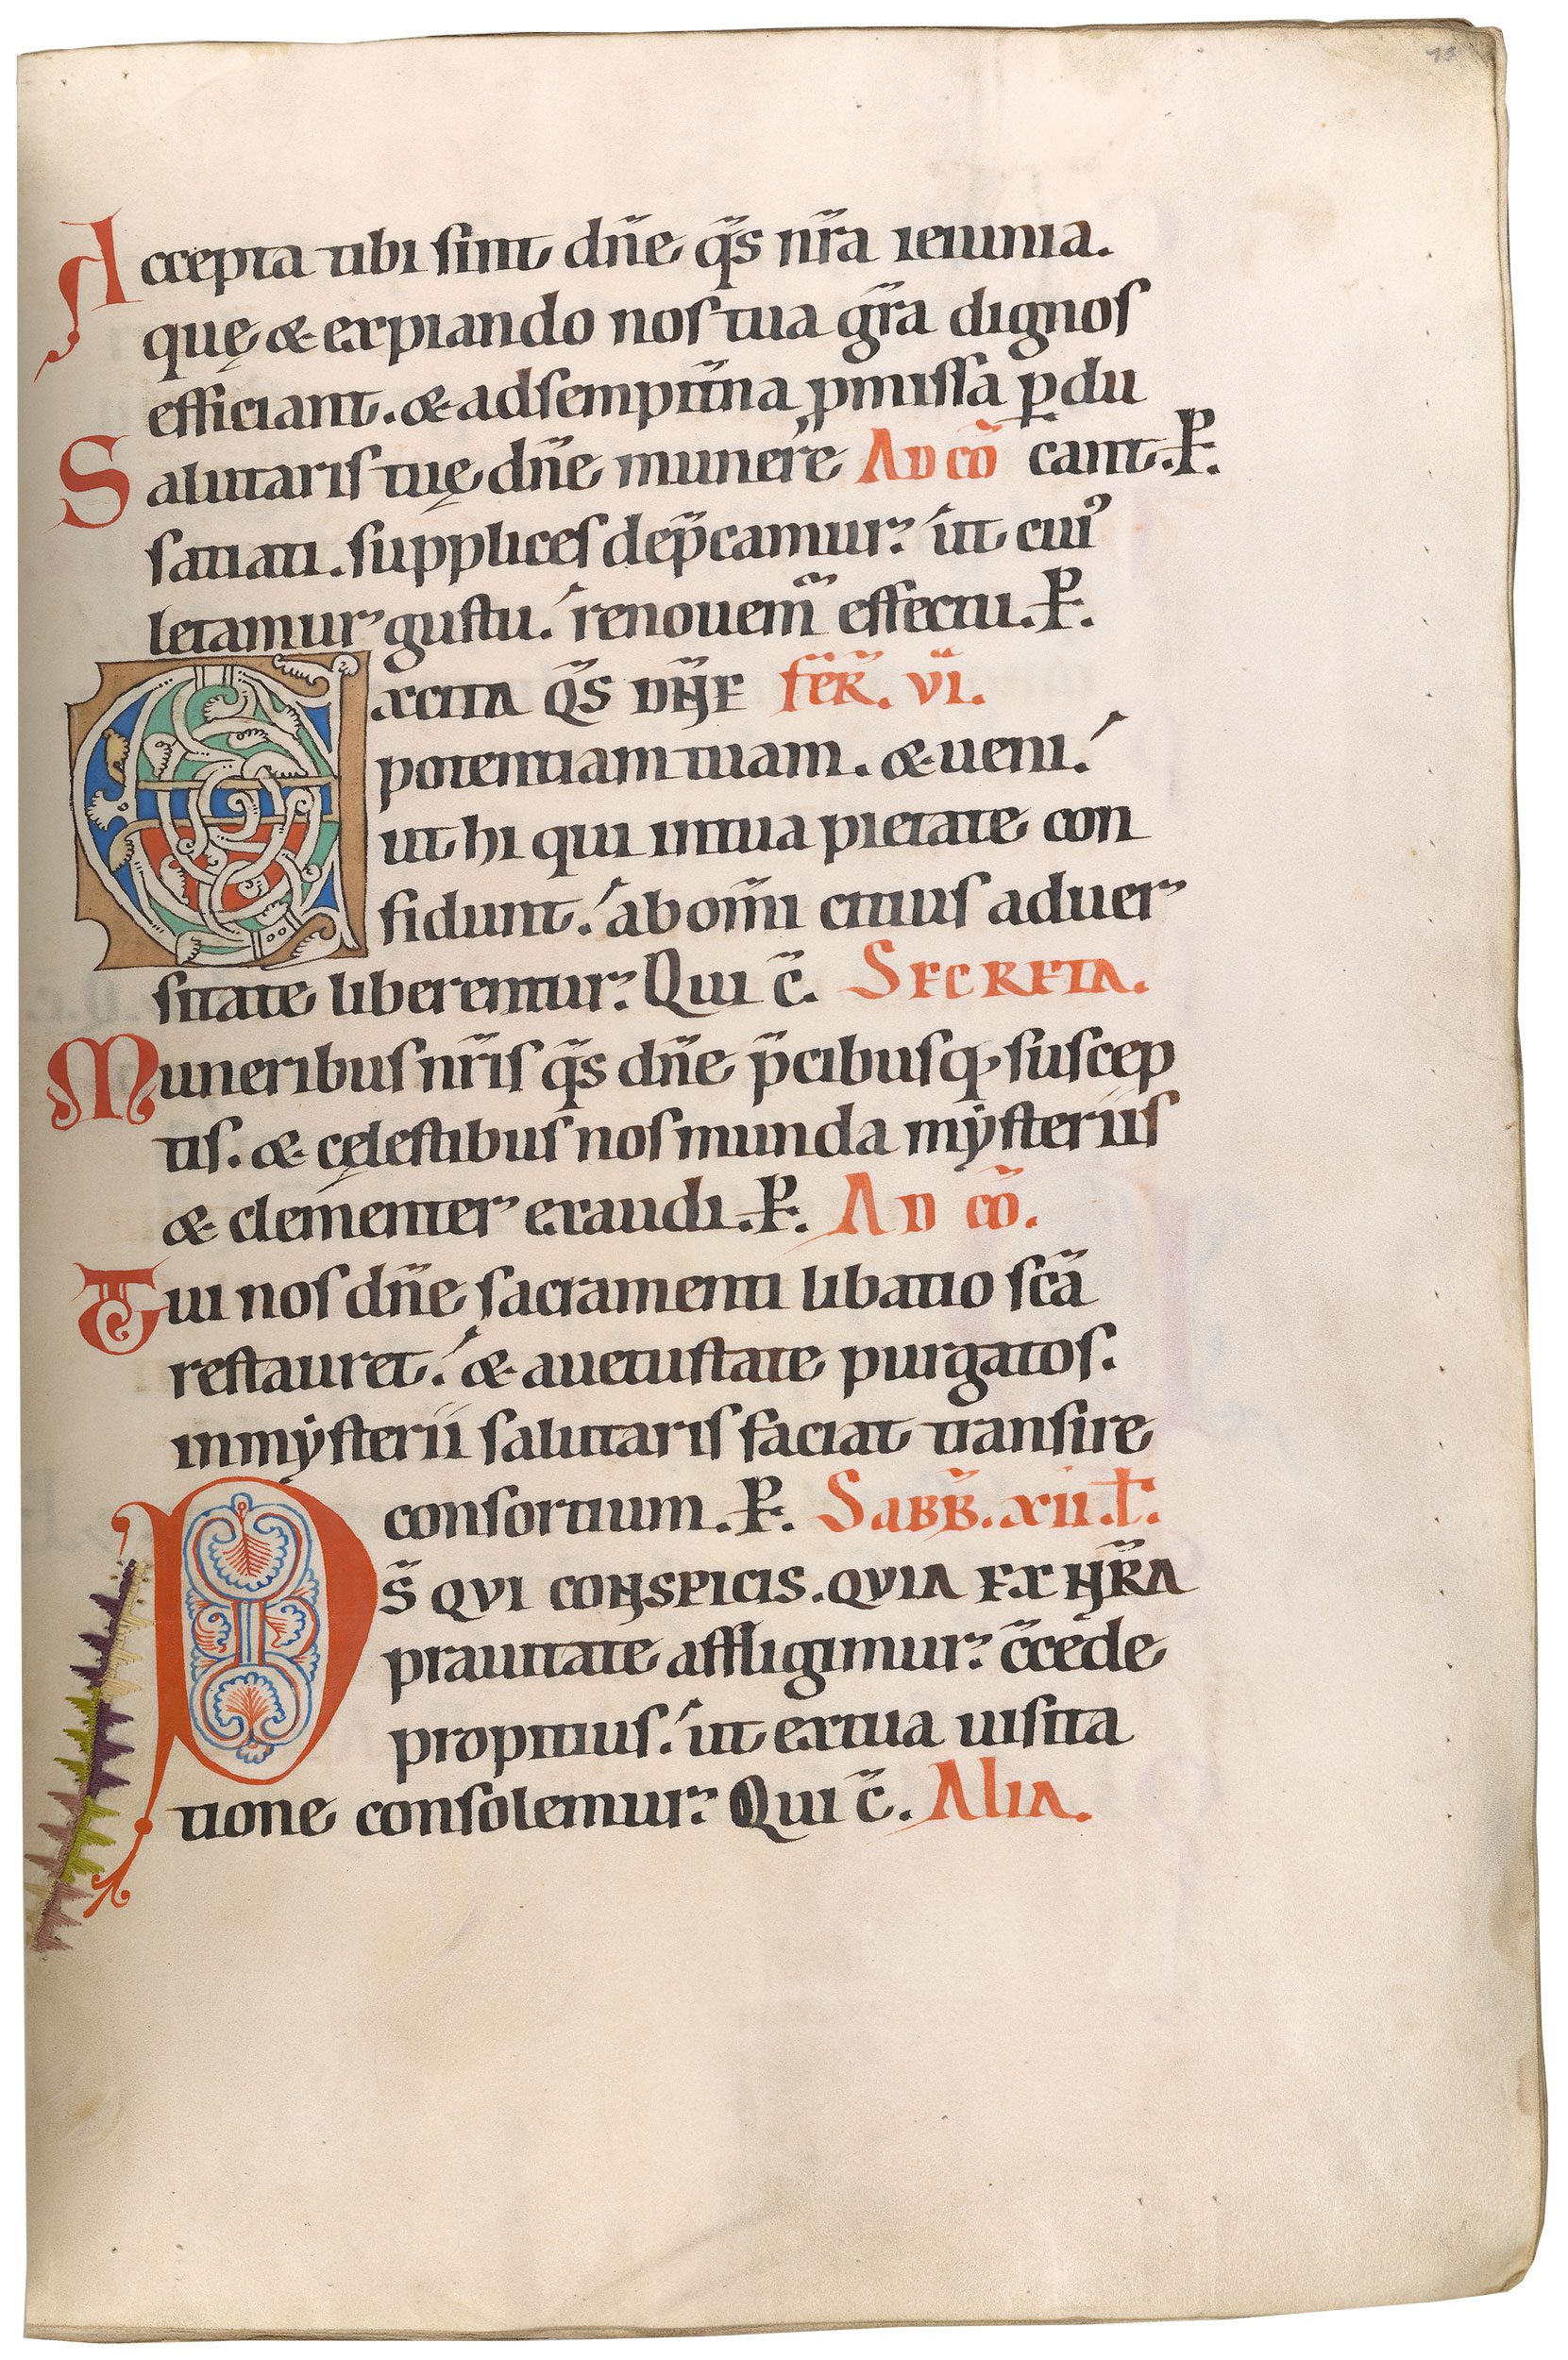 Accepta tibi sint dn̄e q̄s nr̄a ieiunia.
quę & expiando nos tua gr̄a dignos
efficiant. & ad sempit̄na ꝓmissa ꝑdu
Salutaris tuę dn̄e munere Ad cō cant. P̱.
satiati. supplices dep̄camur; ut cui᾽
letamur gustu. renouem̄ effectu. P̱.
Excita q̄s dn̄e fer̄. vi.
potentiam tuam. & ueni.
ut hi qui in tua pietate con
fidunt. ab om̄i citius aduer
sitate liberentur; Qui c̄. Secreta.
Muneribus nr̄is q̄s dn̄e p̄cibusq; suscep
tis. & cęlestibus nos munda mẏsteriis
& clementer exaudi. P̱. Ad cō.
Tui nos dn̄e sacramenti libatio sc̄a
restauret. & a uetustate purgatos.
in mẏsterii salutaris faciat transire
consortium. P̱. Sabb̄. xii. ł.
Ds̄ qui conspicis. quia ex nr̄a
prauitate affligimur; c̄cede
propitius. ut ex tua uisita
tione consolemur; Qui c̄. Alia.